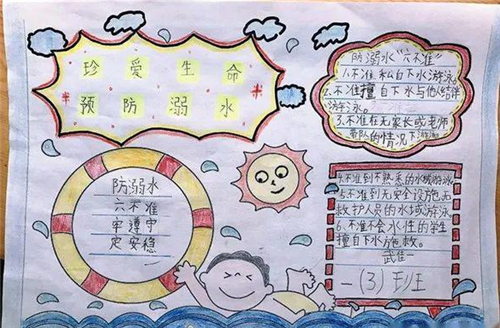 珍爱生命
预防溺水
防溺水“六不准”
1.不准私自下水游泳
2.不准擅自下水与他人结伴
游泳。
3.不准在无家长或老师
带队的情况下游泳
防溺水
六不准
牢遵守
定安稳
4.不准到不熟悉的水域游泳
5.不准到无安全设施无
救护人员的水域游泳
6.不准不会水性的学生
擅自下水施救。
武佳一
一(3)班